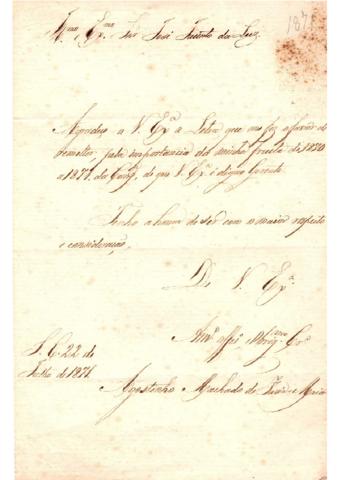 1871
Illmo. Exmo. Snr José Jacinto da Luz
Agradeço a V. Exª a Letra que me fez o favor de
remetter, pela importancia da minha de 1870
a 1871, da Comp. de que V. Exª é digno Gerente.
Tenho a honra de ser com o maior respeito
e consideração,
De V. Exª
Amº
22 de
de 1871.
Agostinho Machado de